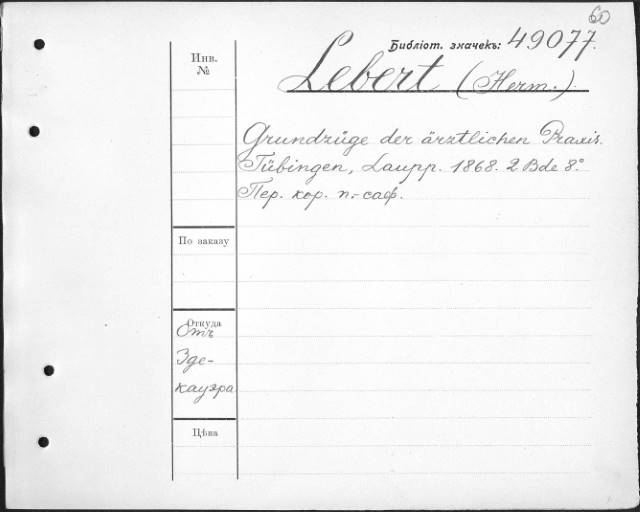 60
Библіот. значекъ: 49077.
Инв.
№
Lebert (Herm.)
Grundzüge der ärztlichen Praxis.
Tübingen, Laupp. 1868. 2 Bde 8°
Пер. кор. п.-саф.
По заказу
Откуда
Отъ
Зде-
кауэра
Цѣна